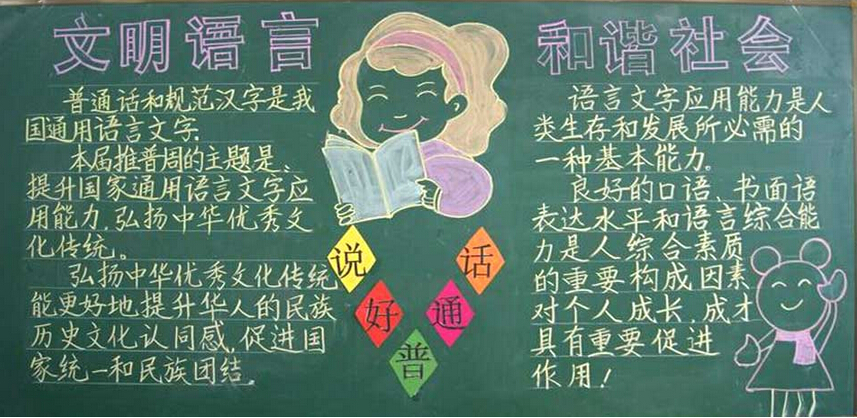 文明语言
普通话和规范汉字是我
国通用语言文字.
本届推普周的主题是、
提升国家通用语言文字应
用能力,弘扬中华优秀文
化传统。
弘扬中华优秀文化传统
能更好地提升华人的民族
历史文化认同感,促进国
家统一和民族团结。
说好普通话
和谐社会
语言文字应用能力是人
类生存和发展所必需的
一种基本能力。
良好的口语、书面语
表达水平和语言综合能
力是人综合素质
的重要构成因素
对个人成长,成才
具有重要促进
作用!